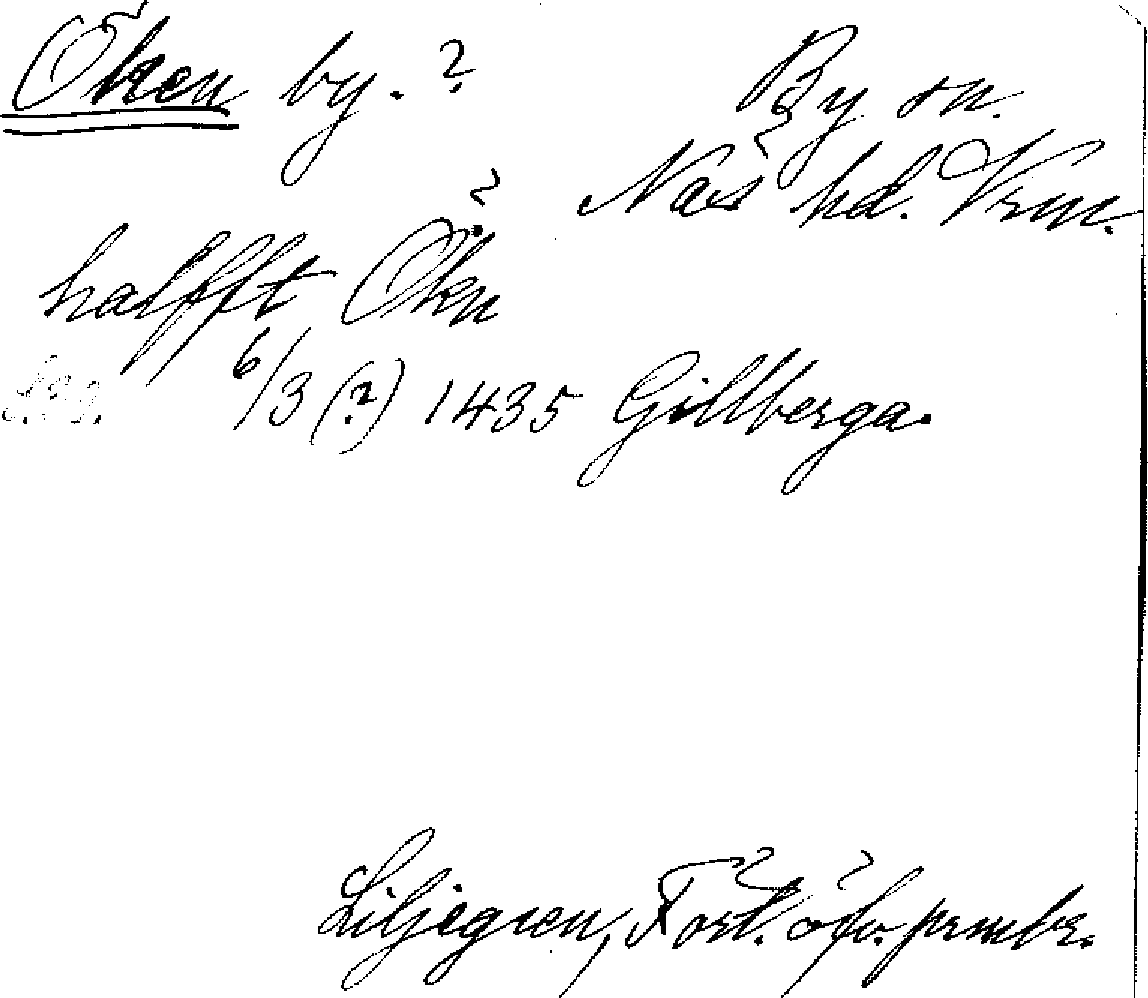 Öken by. ?
By sn.
Näs hd. Vrml.
halfft Økn
6/3 (?) 1435 Gillberga.
Liljegren, Fört. öfv. prmbr.